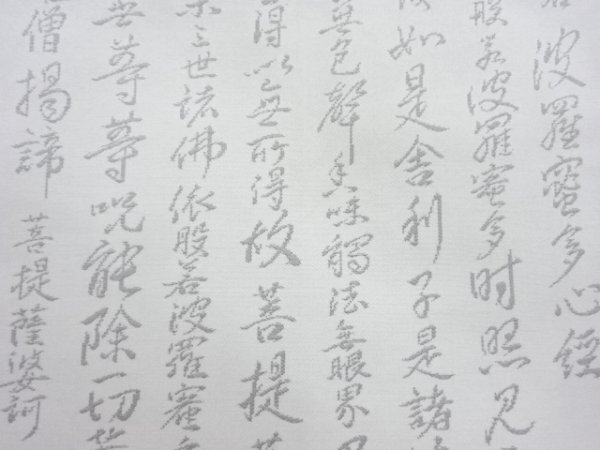 波羅蜜多心經
般若波羅蜜多时照見
如是舍利子是諸
無色聲香味觸法無眼界
得以無所得故菩提
三世諸佛依般若波羅蜜多
等等咒能除一切苦
僧揭諦 菩提薩婆訶